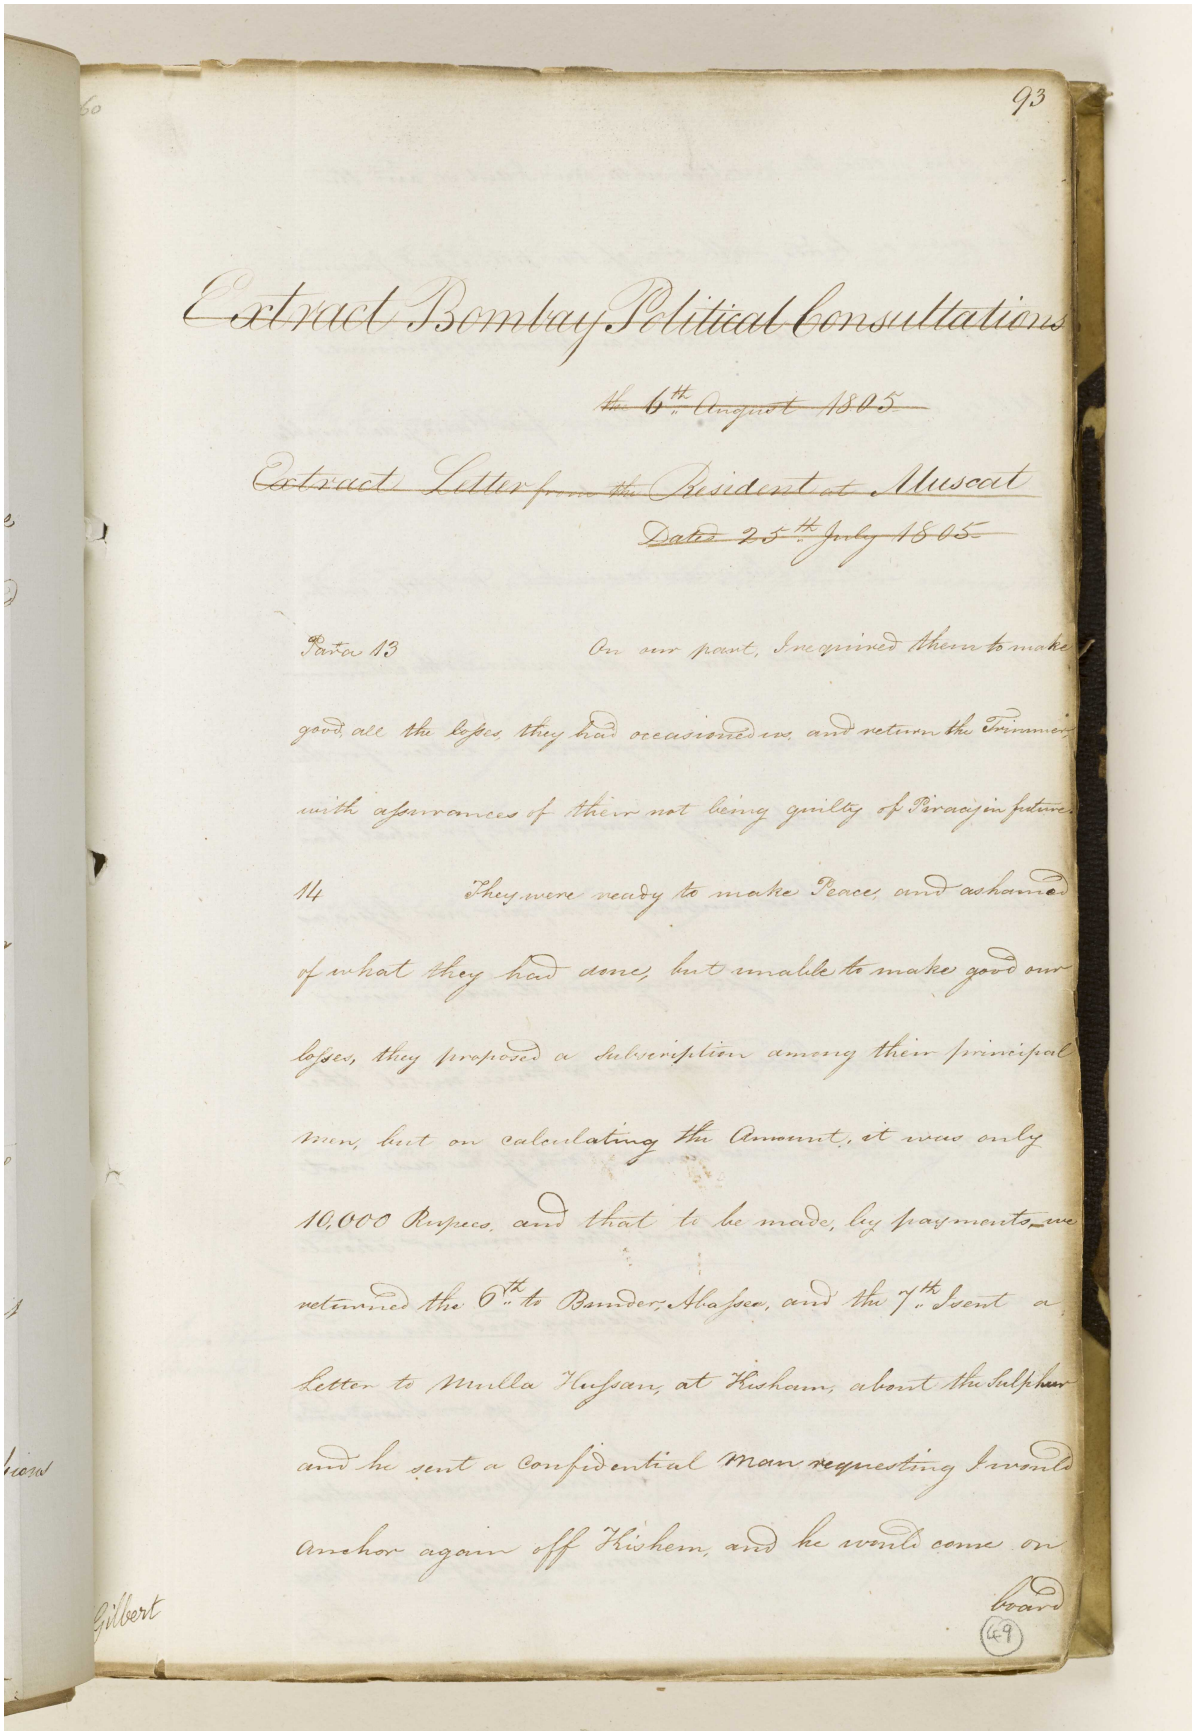 93
Extract Bombay Political Consultations
the 6th August 1805
Extract Letter from the Resident at Muscat
Dated 25th July 1805
Para 13 On our part, I required them to make
good, all the losses, they had occasioned us, and return the Trimmer,
with assurances of their not being guilty of Piracy in future.
14 They were ready to make Peace, and ashamed
of what they had done, but unable to make good our
losses, they proposed a Subscription among their principal
men, but on calculating the Amount, it was only
10,000 Rupees, and that to be made, by payments_we
returned the 6th to Bunder, Abassee, and the 7th I sent a
Letter to Mulla Hussan, at Kisham, about the Sulphur
and he sent a Confidential Man requesting I would
anchor again off Kishem, and he would come on
board
49
Gilbert